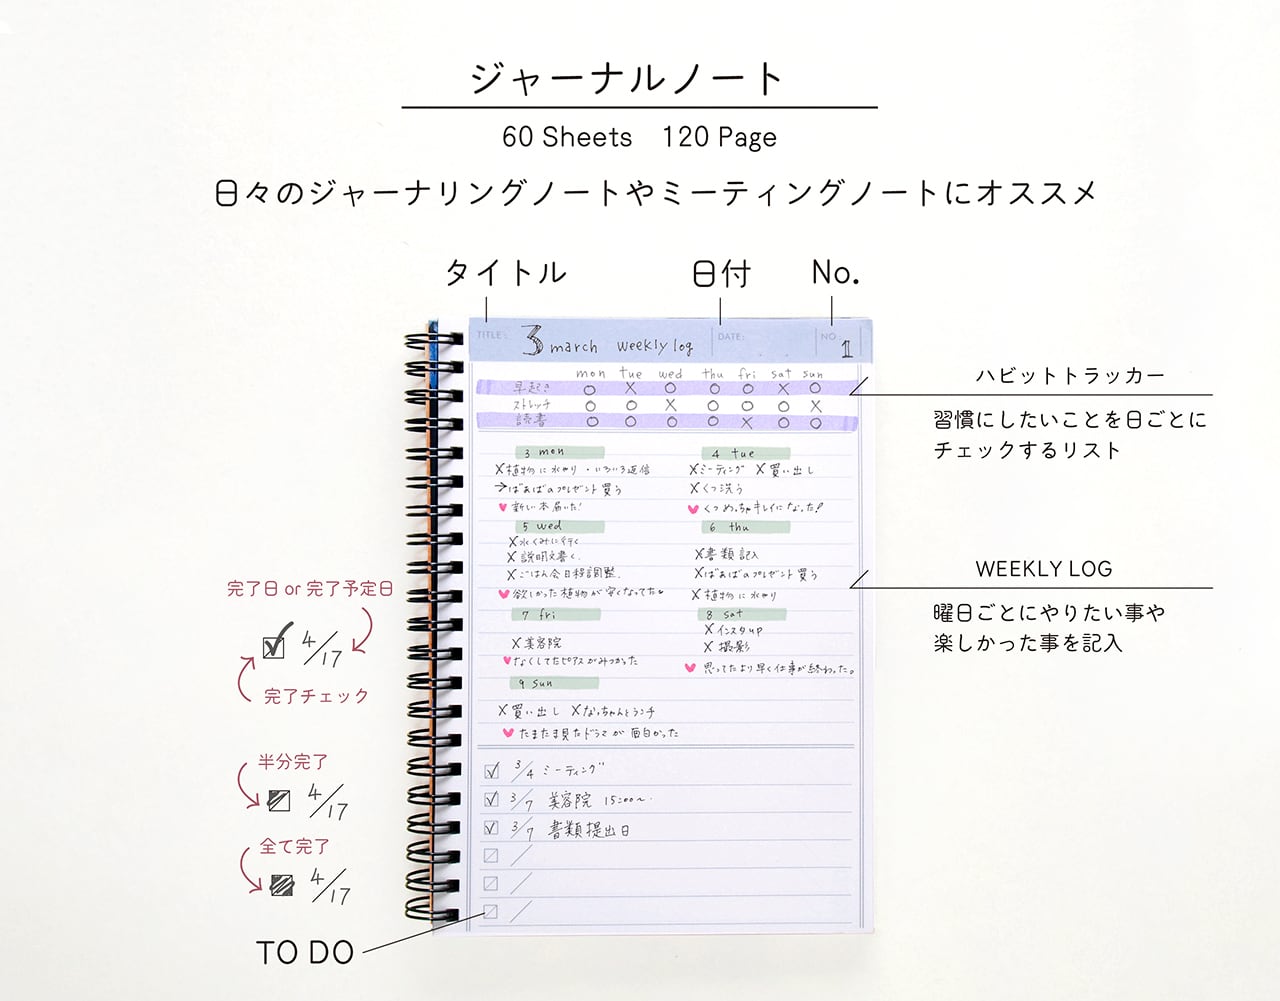 ジャーナルノート
60 Sheets 120 Page
日々のジャーナリングノートやミーティングノートにオススメ
タイトル 日付 No.
TITLE: 3 march weekly log DATE: NO. 1
mon tue wed thu fri sat sun
早起き ○ X ○ ○ ○ X ○
ストレッチ ○ ○ X ○ ○ ○ X
読書 ○ ○ ○ ○ X ○ ○
ハビットトラッカー
習慣にしたいことを日ごとに
チェックするリスト
3 mon
X植物に水やり ・いろいろ返信
→ばあばのプレゼント買う
♥新しい本届いた!
4 tue
Xミーティング X買い出し
Xくつ洗う
♥くつめっちゃキレイになった!
5 wed
X水くみに行く
X説明文書く.
Xごはん会日程調整.
♥欲しかった植物が安くなってた♥
6 thu
X書類記入
Xばあばのプレゼント買う
X植物に水やり
7 fri
X美容院
♥なくしてたピアスがみつかった
8 sat
Xインスタup
X撮影
♥思ってたより早く仕事が終わった。
9 sun
X買い出し Xなっちゃんとランチ
♥たまたま見たドラマが面白かった
WEEKLY LOG
曜日ごとにやりたい事や
楽しかった事を記入
☑ 3/4 ミーティング
☑ 3/7 美容院 15:00〜
☑ 3/7 書類提出日
完了日 or 完了予定日
4/17
完了チェック
半分完了
4/17
全て完了
4/17
TO DO